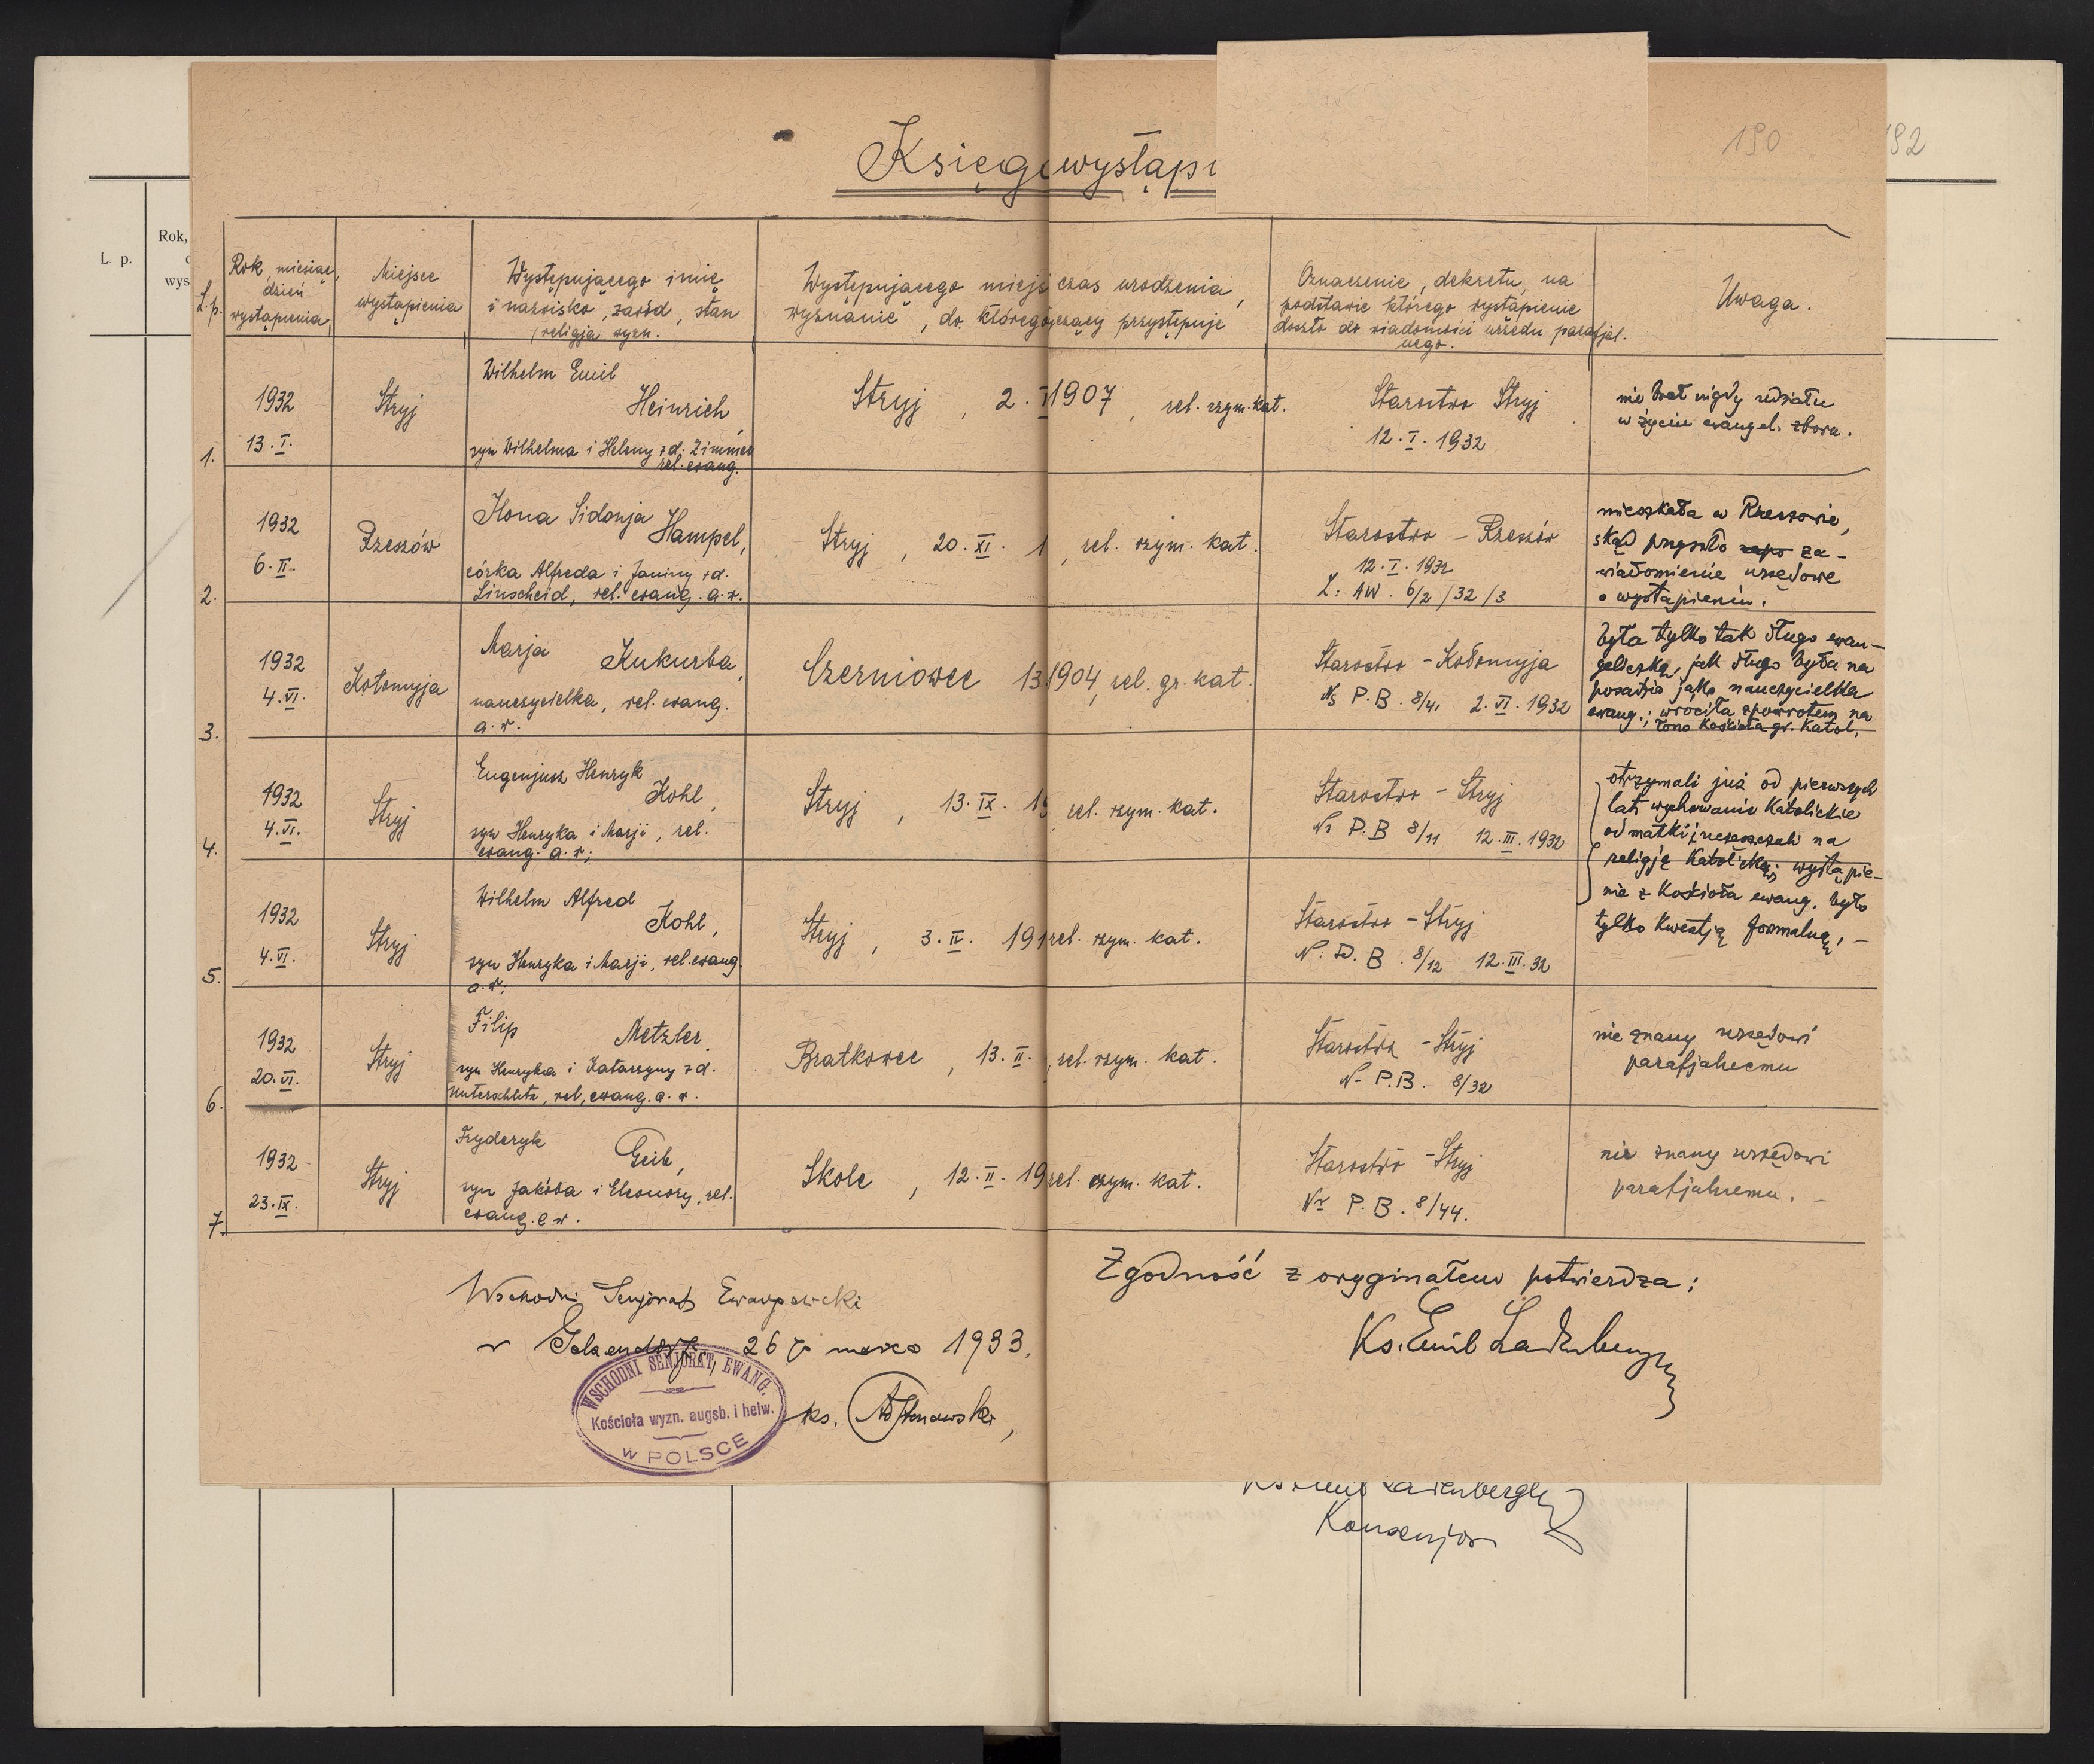 190
192
Księg wystąpi
L. p.
Rok,
wys
L.p.
Rok, miesiąc,
dzień
wystąpienia
Miejsce
wystąpienia
Występującego imię
i nazwisko, zawód, stan
religja wyzn.
Występującego miejs czas urodzenia,
wyznanie, do którego ący przystępuje
Oznaczenie, dekretu, na
podstawie którego wystąpienie
doszło do wiadomości urzędu parafjal-
nego.
Uwaga.
1.
1932
13. I.
Stryj
Wilhelm Emil
Heinrich,
syn Wilhelma i Heleny z d. Zimmer
rel. ewang.
Stryj, 2. 1907, rel. rzym. kat.
Starostwo Stryj
12. I. 1932
nie brał nigdy udziału
w życiu ewangel. zboru.
2.
1932
6. II.
Rzeszów
Ilona Sidonja
Hampel,
córka Alfreda i Janiny z d.
Linscheid, rel. ewang. a. w.
Stryj, 20. XI. 1 , rel. rzym. kat.
Starostwo - Rzeszów
12. I. 1932
L: AW. 6/2/32/3
mieszkała w Rzeszowie,
skąd przyszło za-
wiadomienie urzędowe
o wystąpieniu.
3.
1932
4. VI.
Kołomyja
Marja Kukurba,
nauczycielka, rel. ewang.
a. w.
Czerniowce 13 1904, rel. gr. kat.
Starostwo - Kołomyja
No P.B. 8/41 2. VI. 1932
była tylko tak długo ewan-
geliczką, jak długo była na
posadzie jako nauczycielka
ewang.; wróciła zpowrotem na
łono Kościoła gr. Katol.
4.
1932
4. VI.
Stryj
Eugenjusz Henryk
Kohl,
syn Henryka i Marji, rel.
ewang. a. w.;
Stryj, 13. IX. 19 , rel. rzym. kat.
Starostwo - Stryj
Nr P.B 8/11 12. III. 1932
otrzymali już od pierwszych
lat wychowanie Katolickie
od matki; uczęszczali na
religję Katolicką; wystąpie-
nie z Kościoła ewang. było
tylko Kwestją formalną. -
5.
1932
4. VI.
Stryj
Wilhelm Alfred
Kohl,
syn Henryka i Marji, rel. ewang
a. w;
Stryj, 3. IV. 191 rel. rzym. kat.
Starostwo - Stryj
N. P. B. 8/12 12. III. 32
6.
1932
20. VI.
Stryj
Filip Metzler,
syn Henryka i Katarzyny z d.
Unterschütz, rel. ewang. a. w.
Bratkowce, 13. II. , rel. rzym. kat.
Starostwo - Stryj
N- P.B. 8/32
nie znany urzędowi
parafjalnemu
7.
1932
23. IX.
Stryj
Fryderyk
Geib,
syn Jakóba i Eleonory, rel.
ewang. a w.
Skole, 12. II. 19 rel. rzym. kat.
Starostwo - Stryj
Nr P.B. 8/44.
nie znany urzędowi
parafjalnemu. -
Wschodni Senjorat Ewangelicki
w Gelsendorf, 26 marca 1933.
ks.
WSCHODNI SENJORAT, EWANG.
Kościoła wyzn. augsb. i helw.
W POLSCE
Zgodność z oryginałem potwierdza:
Ks. Emil Ladenberger
Ladenberger
Konsenjor